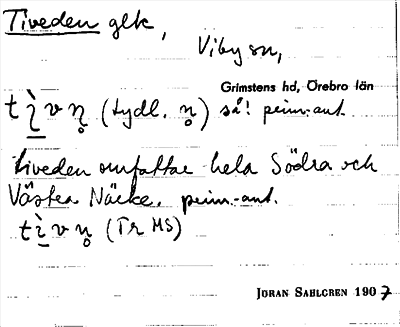 Tiveden glk,
Viby sn,
Grimstens hd, Örebro län
tì̱vn̥ (tydl. n̥) så! peim.-ant.
Tiveden omfattar hela Södra och
Västra Närke. peim.-ant.
tì̱vn̥ (Tr MS)
JÖRAN SAHLGREN 1907